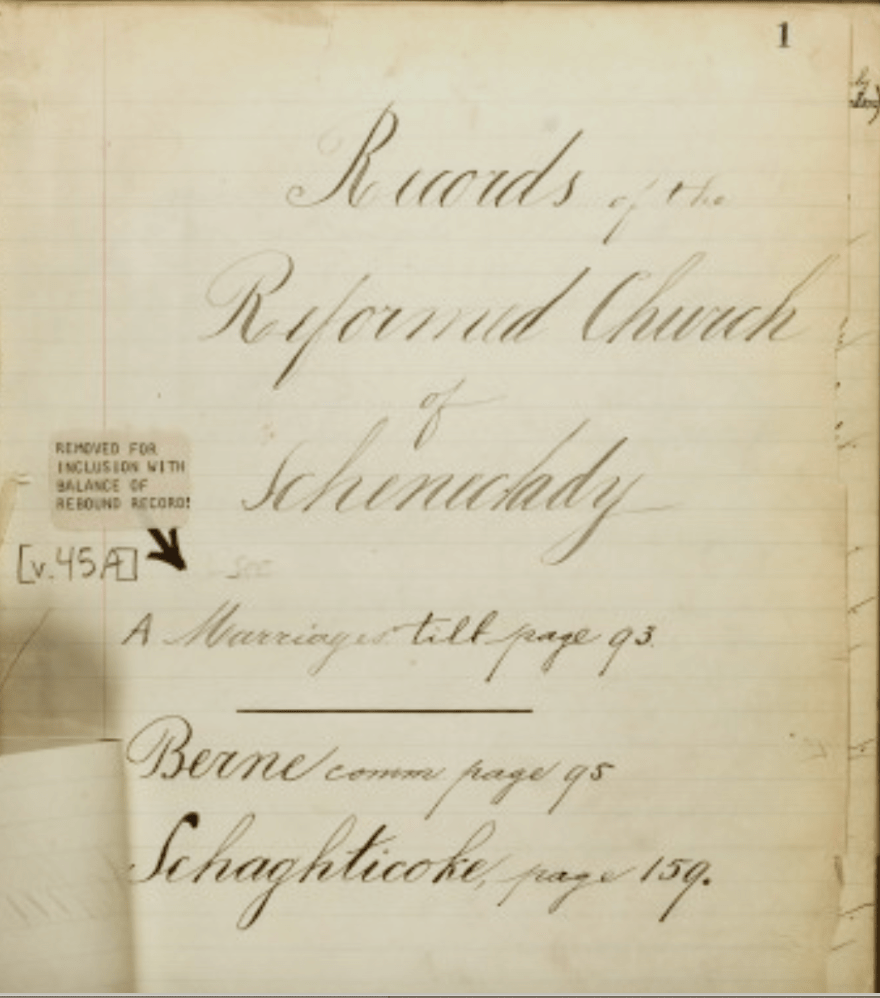 1
Records of the
Reformed Church
of
Schenectady
REMOVED FOR
INCLUSION WITH
BALANCE OF
REBOUND RECORDS
[v.45A]
see
A Marriages till page 93
Berne comm page 95
Schaghticoke, page 159.